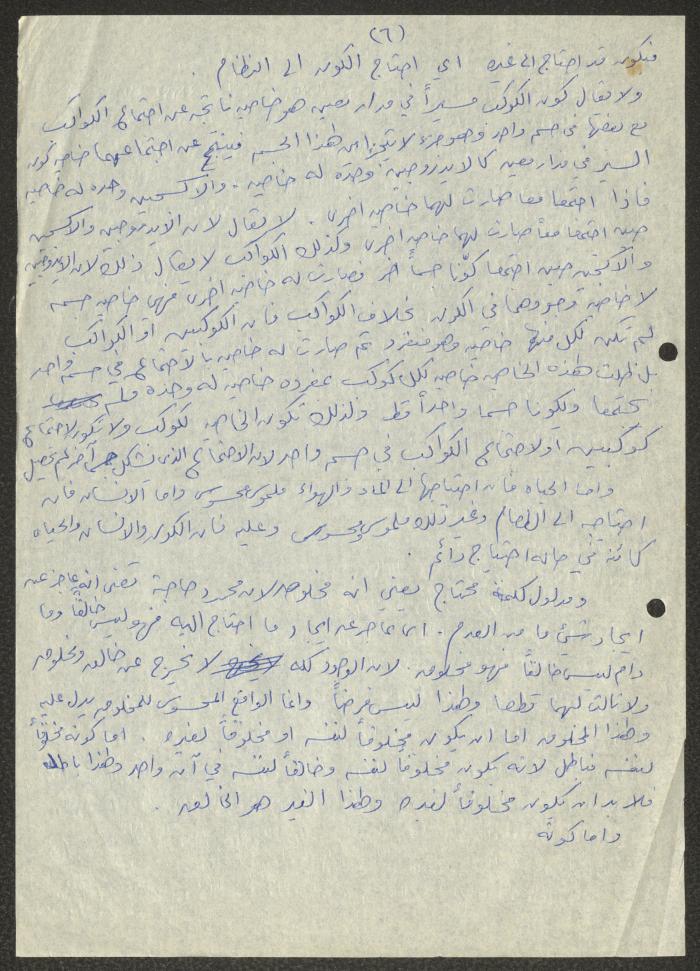 (٦)
فتكون قد احتاج الى غيره اي احتاج الكون الى النظام .
ولا يقال كون الكوكب مسيراً في مدار معين هو خاصية ناتجة عن اجتماع الكواكب
مع بعضها في جسم واحد فهو جزء لا يتجزأ من هذا الجسم فينتج عن اجتماعهما خاصية كون
السير في مدار معين كالايدروجين وحده له خاصية . والاكسجين وحده له خاصية
فاذا اجتمعا معا صارت لهما خاصية اخرى . لا يقال لان الايدروجين والاكسجين
حين اجتمعا معاً صارت لهما خاصية اخرى وكذلك الكواكب لا يقال ذلك لان الايدروجين
والاكسجين حين اجتمعا كوّنا جسماً آخر فصارت له خاصية اخرى فهي خاصية جسم
لا خاصية وجودهما في الكون بخلاف الكواكب فان الكوكبين او الكواكب
لم تكن لكل منها خاصية وهو منفرد ثم صارت له خاصية بالاجتماع في جسم واحد
بل ظلت هذه الخاصية خاصية لكل كوكب بمفرده خاصية له وحده ولم
يجتمعا ويكونا جسما واحداً قط ولذلك تكون الخاصية للكوكب ولا تكون لاجتماع
كوكبين او لاجتماع الكواكب في جسم واحد لان الاجتماع الذي شكل جسماً آخر لم يحصل
واما الحياة فان احتياجها الى الماء والهواء ملموس محسوس واما الانسان فان
احتياجه الى الطعام وغير ذلك ملموس ومحسوس وعليه فان الكون والانسان والحياة
كائنة في حالة احتياج دائم .
ومدلول كلمة محتاج يعني انه مخلوق لان مجرد حاجة تعني انه عاجز عن
ايجاد شيء ما من العدم . اي عاجز عن ايجاد ما احتاج اليه فهو ليس خالقاً وما
دام ليس خالقاً فهو مخلوق . لان الوجود كله لا يخرج عن خالق ومخلوق
ولا ثالث لهما قطعا وهذا ليس فرضاً وانما الواقع المحسوس للمخلوق يدل عليه
وهذا المخلوق اما ان يكون مخلوقاً لنفسه او مخلوقاً لغيره . اما كونه مخلوقاً
لنفسه فباطل لانه يكون مخلوقاً لنفسه وخالقاً لنفسه في آن واحد وهذا باطل
فلا بد ان يكون مخلوقاً لغيره وهذا الغير هو الخالق .
واما كونه